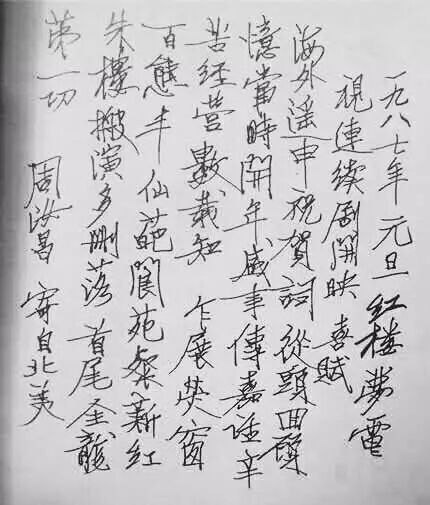 一九八七年元旦红楼梦電
視連续剧開映喜赋
海外遥申祝賀詞從頭回頭
憶當時開年盛事傳嘉話辛
苦经营數载知 乍展熒窗
百態丰仙葩閬苑粲新红
朱樓搬演多删落首尾全龍
苐一功 周汝昌 寄自北美